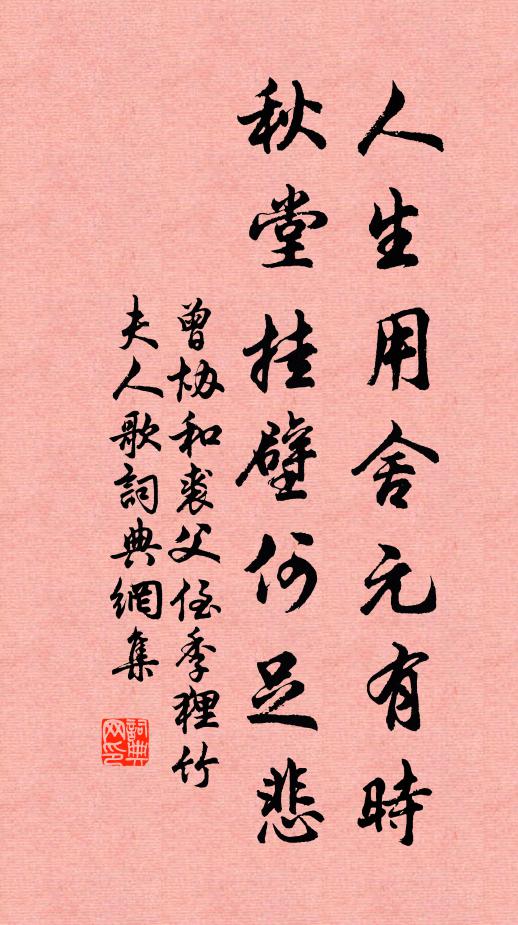 人生用舍元有時
秋堂挂壁何足悲
曾协和裘父侄季狸竹
夫人歌詞典網集
詞典網印